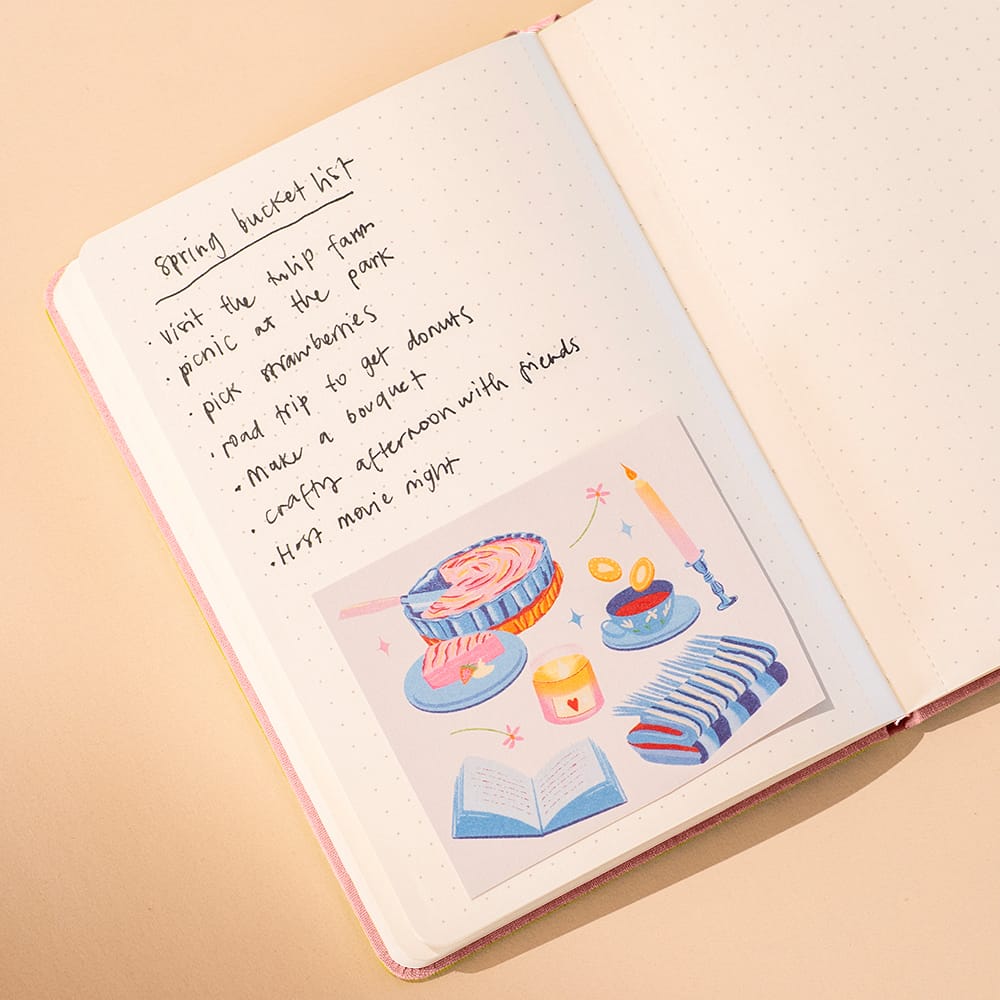 spring bucket list
· visit the tulip farm
· picnic at the park
· pick strawberries
· road trip to get donuts
· make a bouquet
· crafty afternoon with friends
· Host movie night